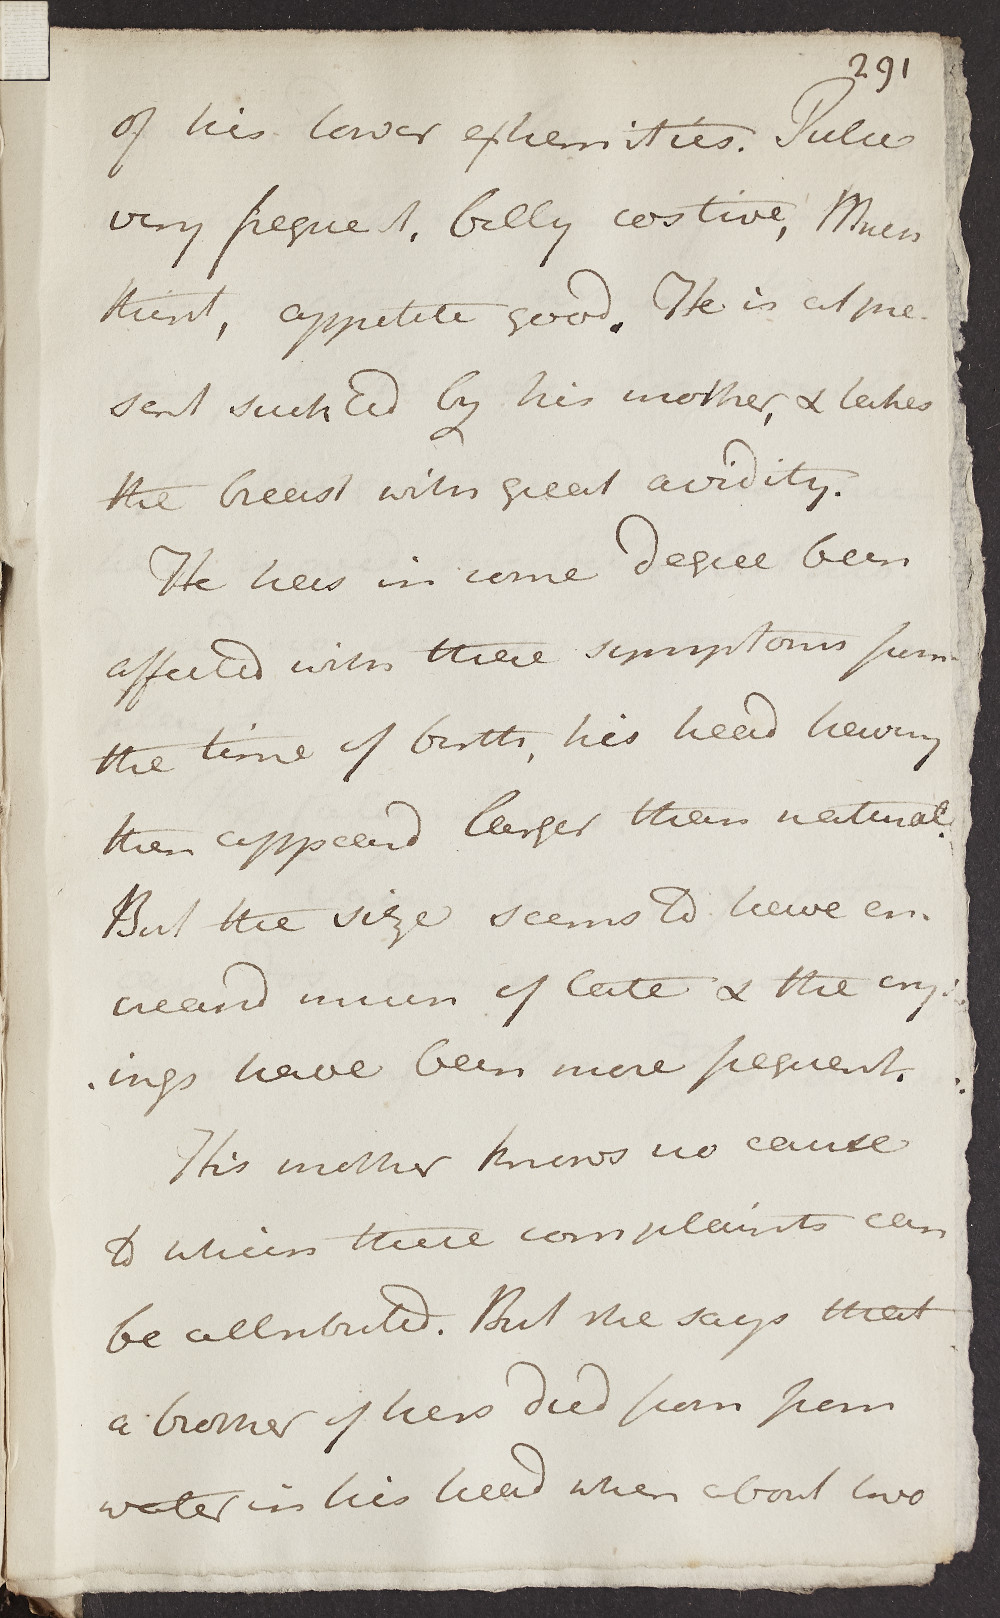 291
of his lower extremities. Pulse
very frequent, belly costive, Much
thirst, appetite good. He is at pre-
sent suckled by his mother, & takes
the breast with great avidity.
He has in some degree been
affected with these symptoms from
the time of birth, his head having
then appeard larger than natural.
But the size seems to have en-
creasd much of late & the cry-
-ings have been more frequent.
His mother knows no cause
to which these complaints can
be attributed. But she says that
a brother of hers died from from
water in his head when about two